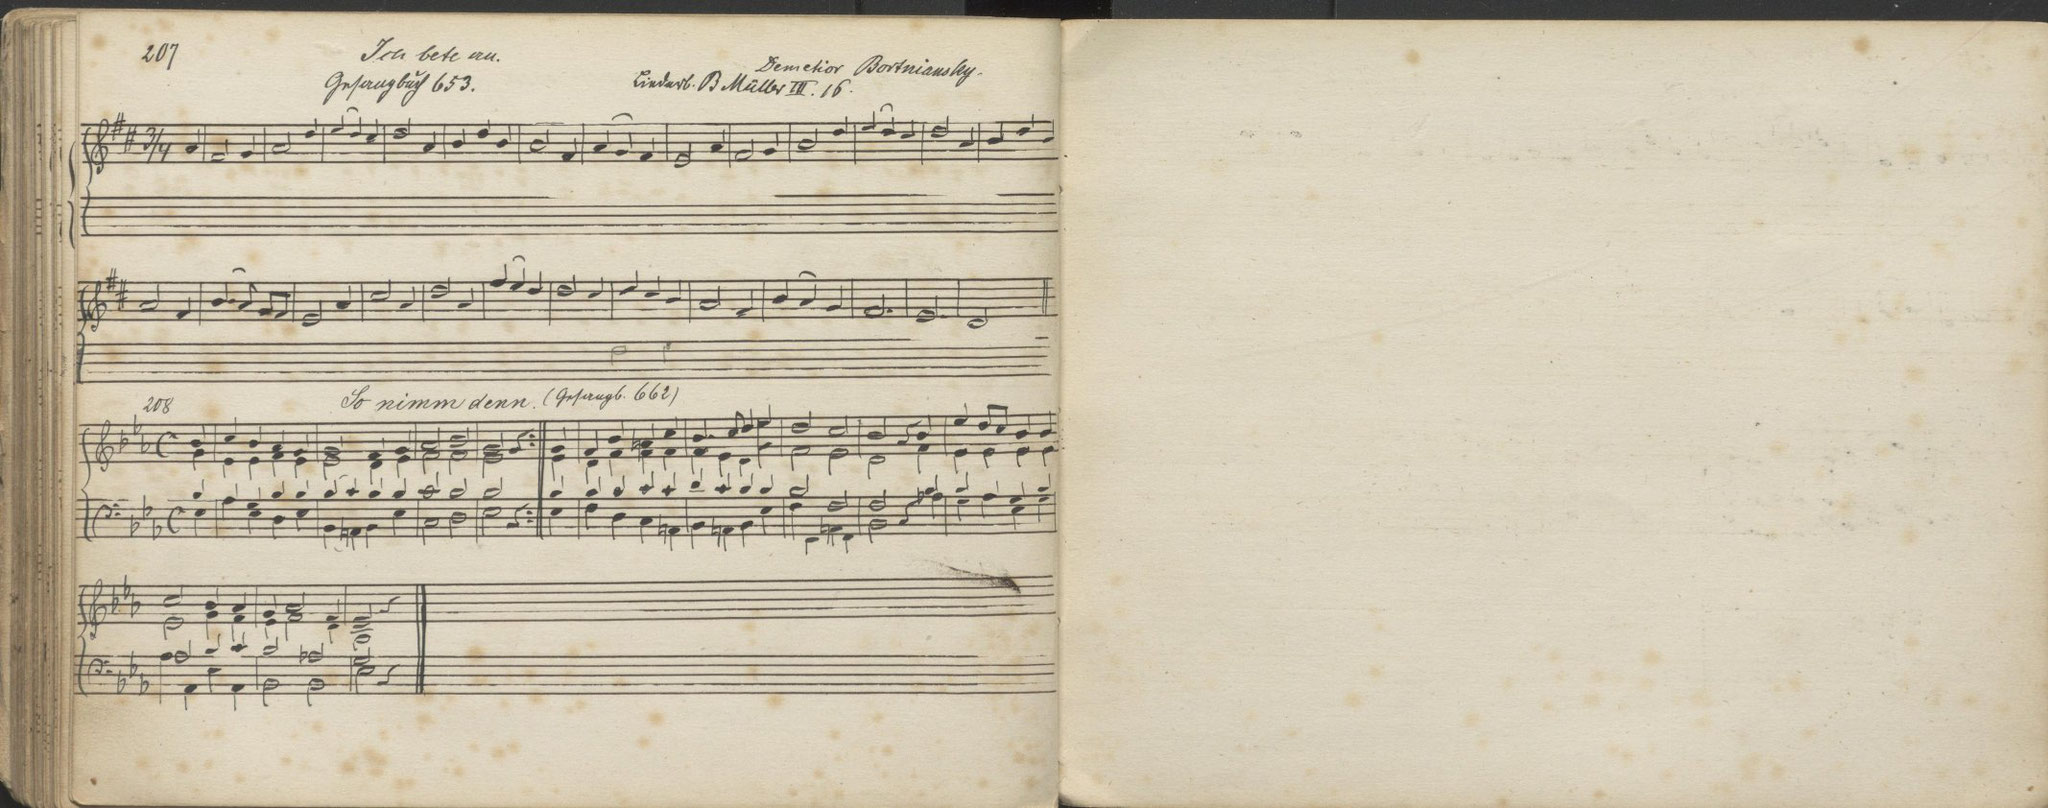 207
Ich bete an.
Demetior Bortniansky.
Gesangbuch 653.
Liederb. B Müller III. 16.
3/4
208
So nimm denn. (Gesangb. 662)